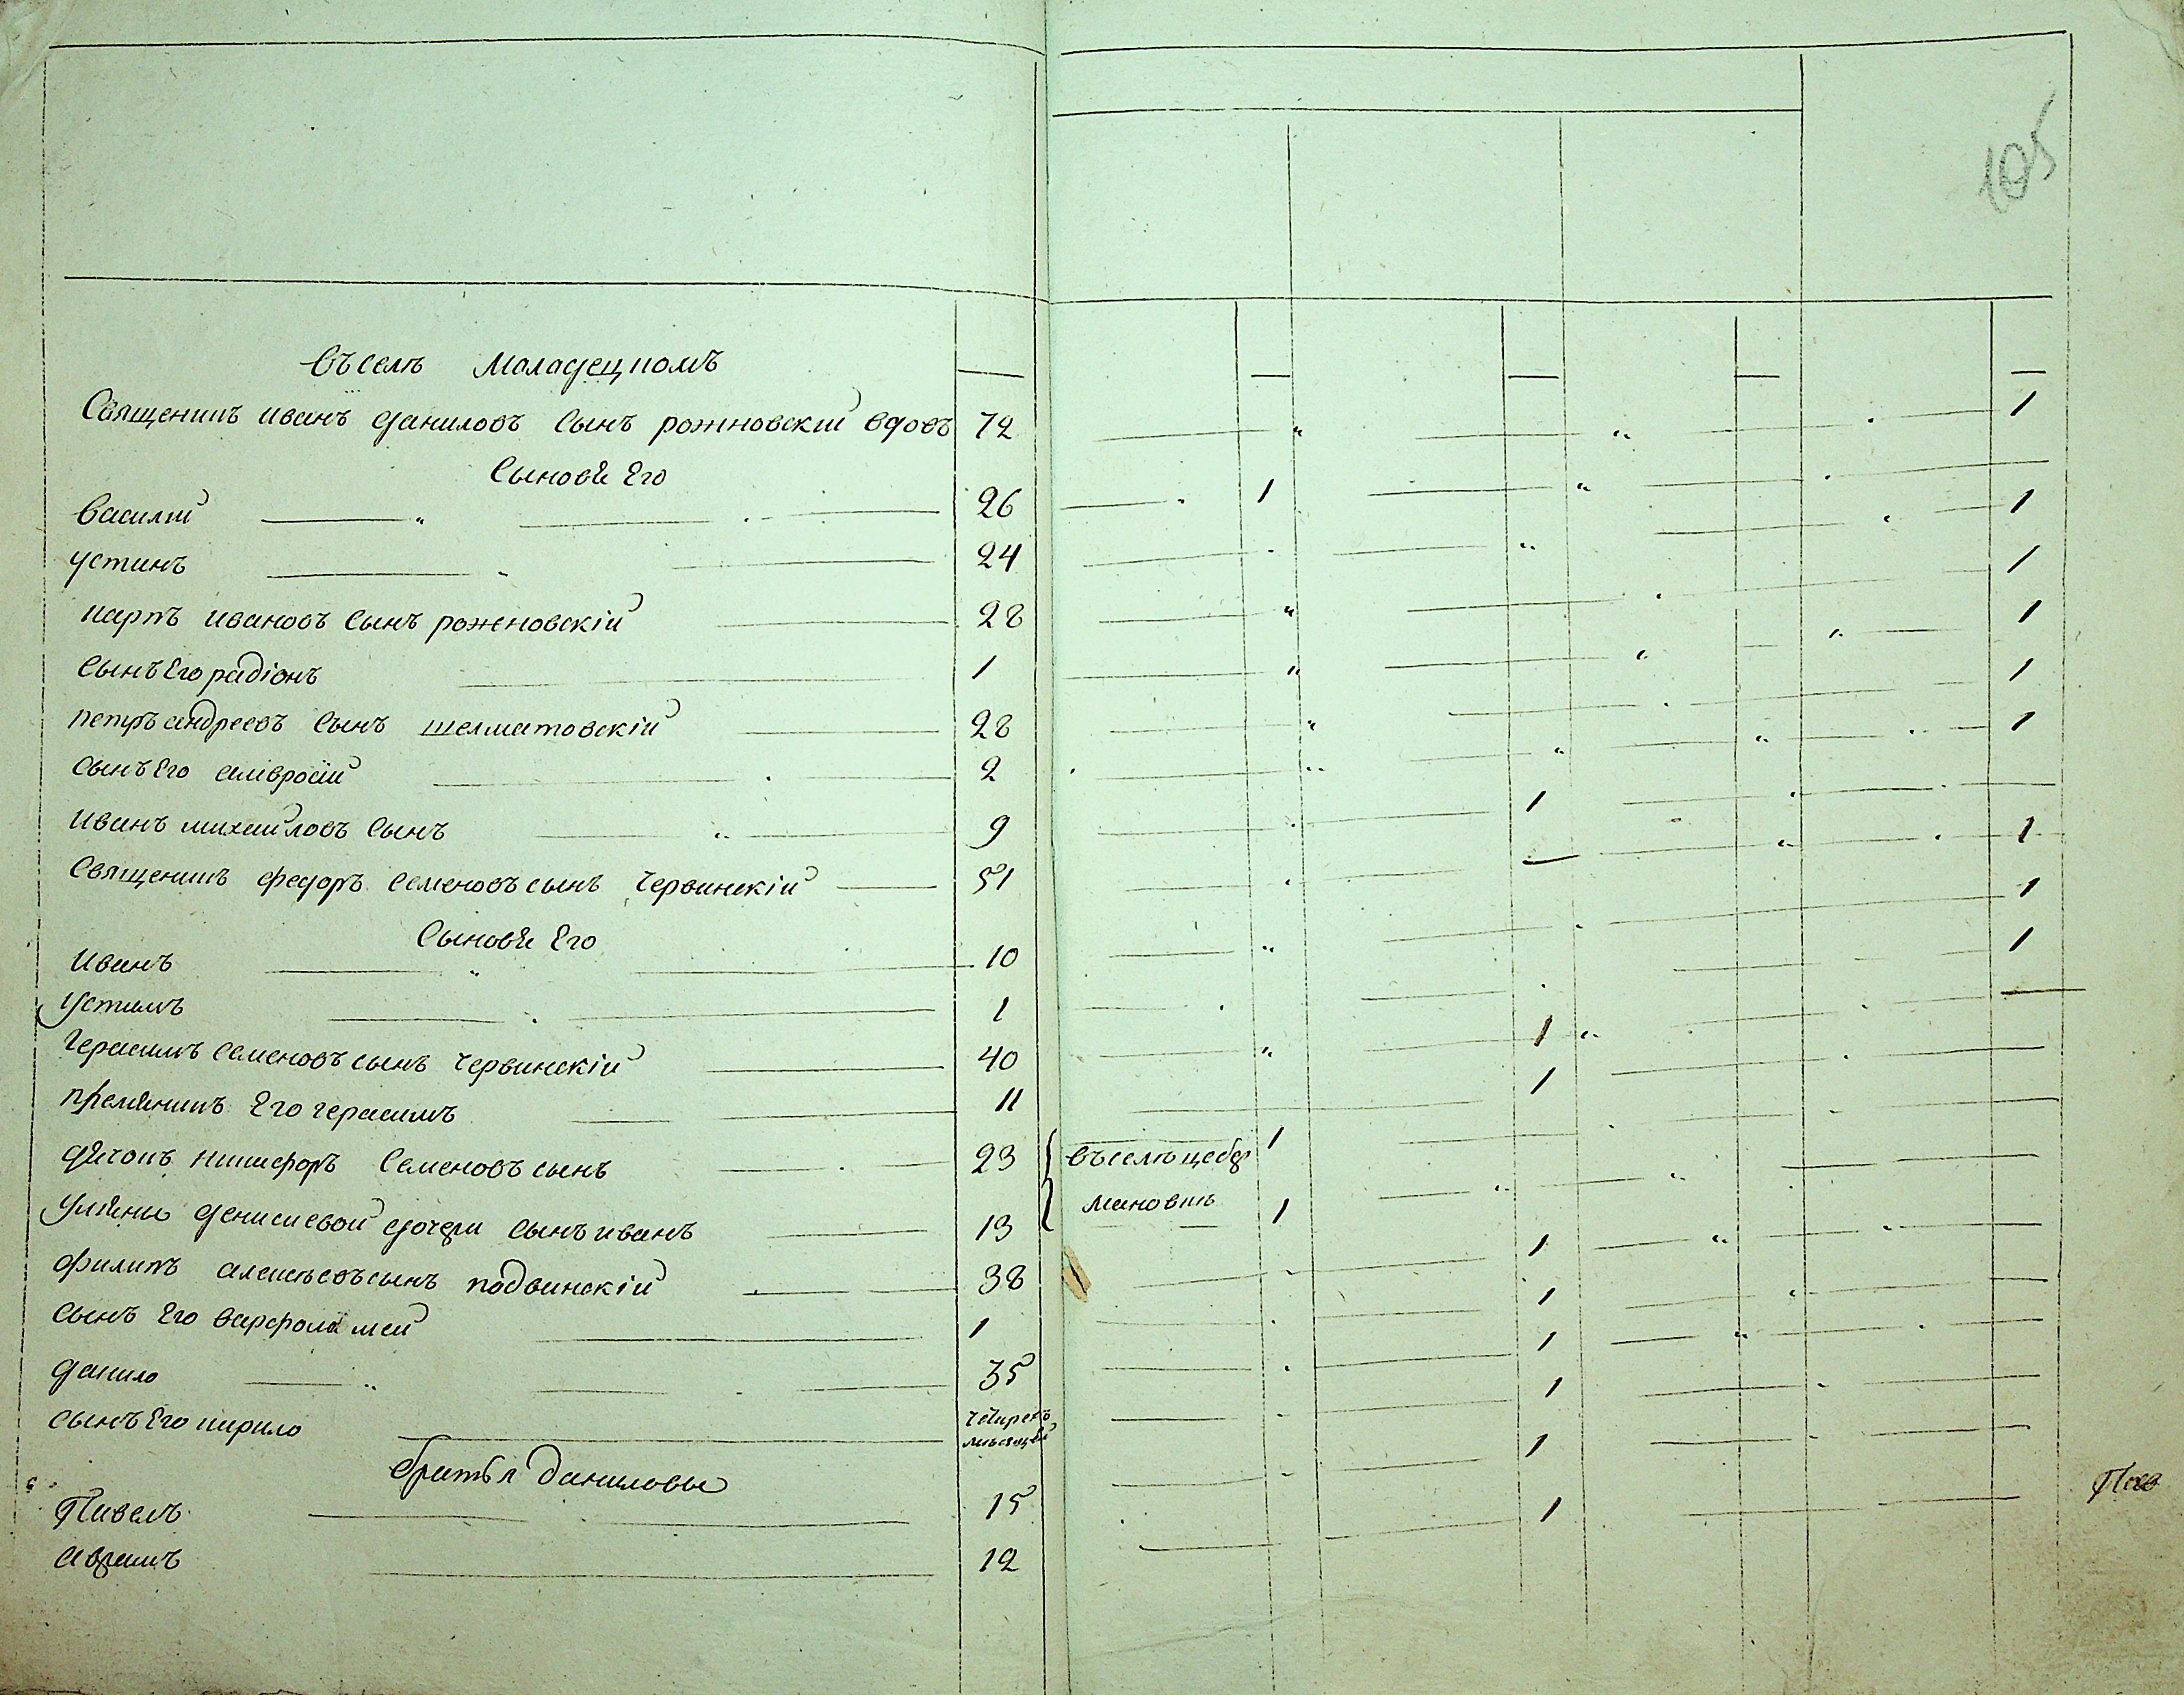 105
въ селѣ Маладецкомъ
Священикъ иванъ даниловъ сынъ рожновскій вдовъ 72 1
Сыновя Его
василій 26 1
устинъ 24 1
карпъ ивановъ сынъ рожновскій 28 1
сынъ Его радіонъ 1 1
петръ андреевъ сынъ шелматовскій 28 1
сынъ Его амвросій 2 1
иванъ михайловъ сынъ 9 1
Священикъ федоръ семеновъ сынъ Червинскій 51 1
Сыновя Его
иванъ 10 1
устимъ 1 1
Герасимъ семеновъ сынъ Червинскій 40 1
племяникъ Его герасимъ 11 1
дячокъ никифоръ Семеновъ сынъ 23 въ селѣ цебер 1
Уляны денисиевой дочери сынъ иванъ 13 мановкѣ 1
филипъ алексѣевъ сынъ подвинскій 38 1
сынъ Его варфоламей 1 1
данило 35 1
сынъ Его кирило четирехъ месяцей 1
братья даниловы
Павелъ 15 1
аврамъ 12 1